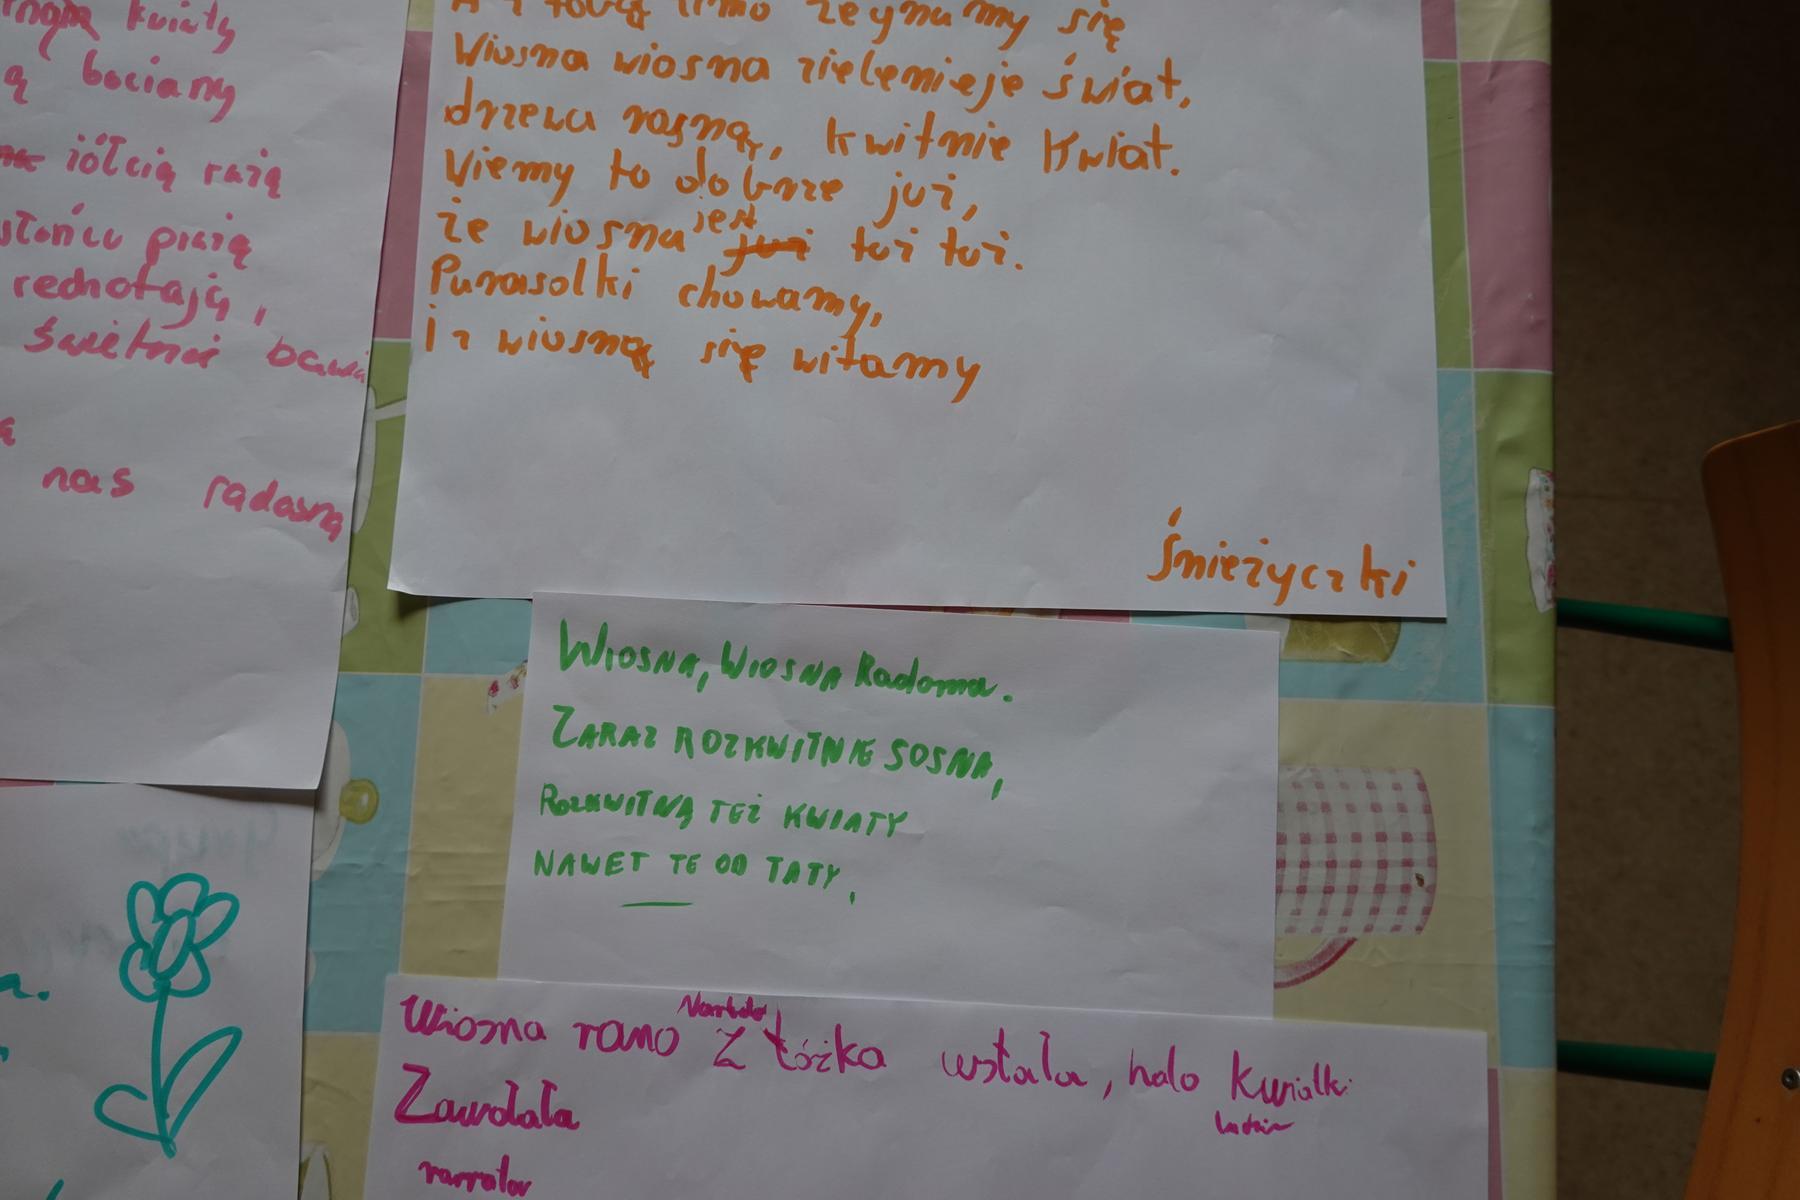 kwiaty
bociany
żółcią rażą
słońcu prażą
rechotają,
świetnie bawią
nas radosną
się
Wiosna wiosna zielenieje świat,
drzewa rosną, kwitnie kwiat.
Wiemy to dobrze już,
że wiosna jest już tuż tuż.
Parasolki chowamy,
i z wiosną się witamy
Śnieżyczki
WIOSNA, WIOSNA Radosna.
ZARAZ ROZKWITNIE SOSNA,
ROZKWITNĄ TEŻ KWIATY
NAWET TE OD TATY.
Wiosna rano Z łóżka wstała, halo kwiatki
Zawołała
narrator